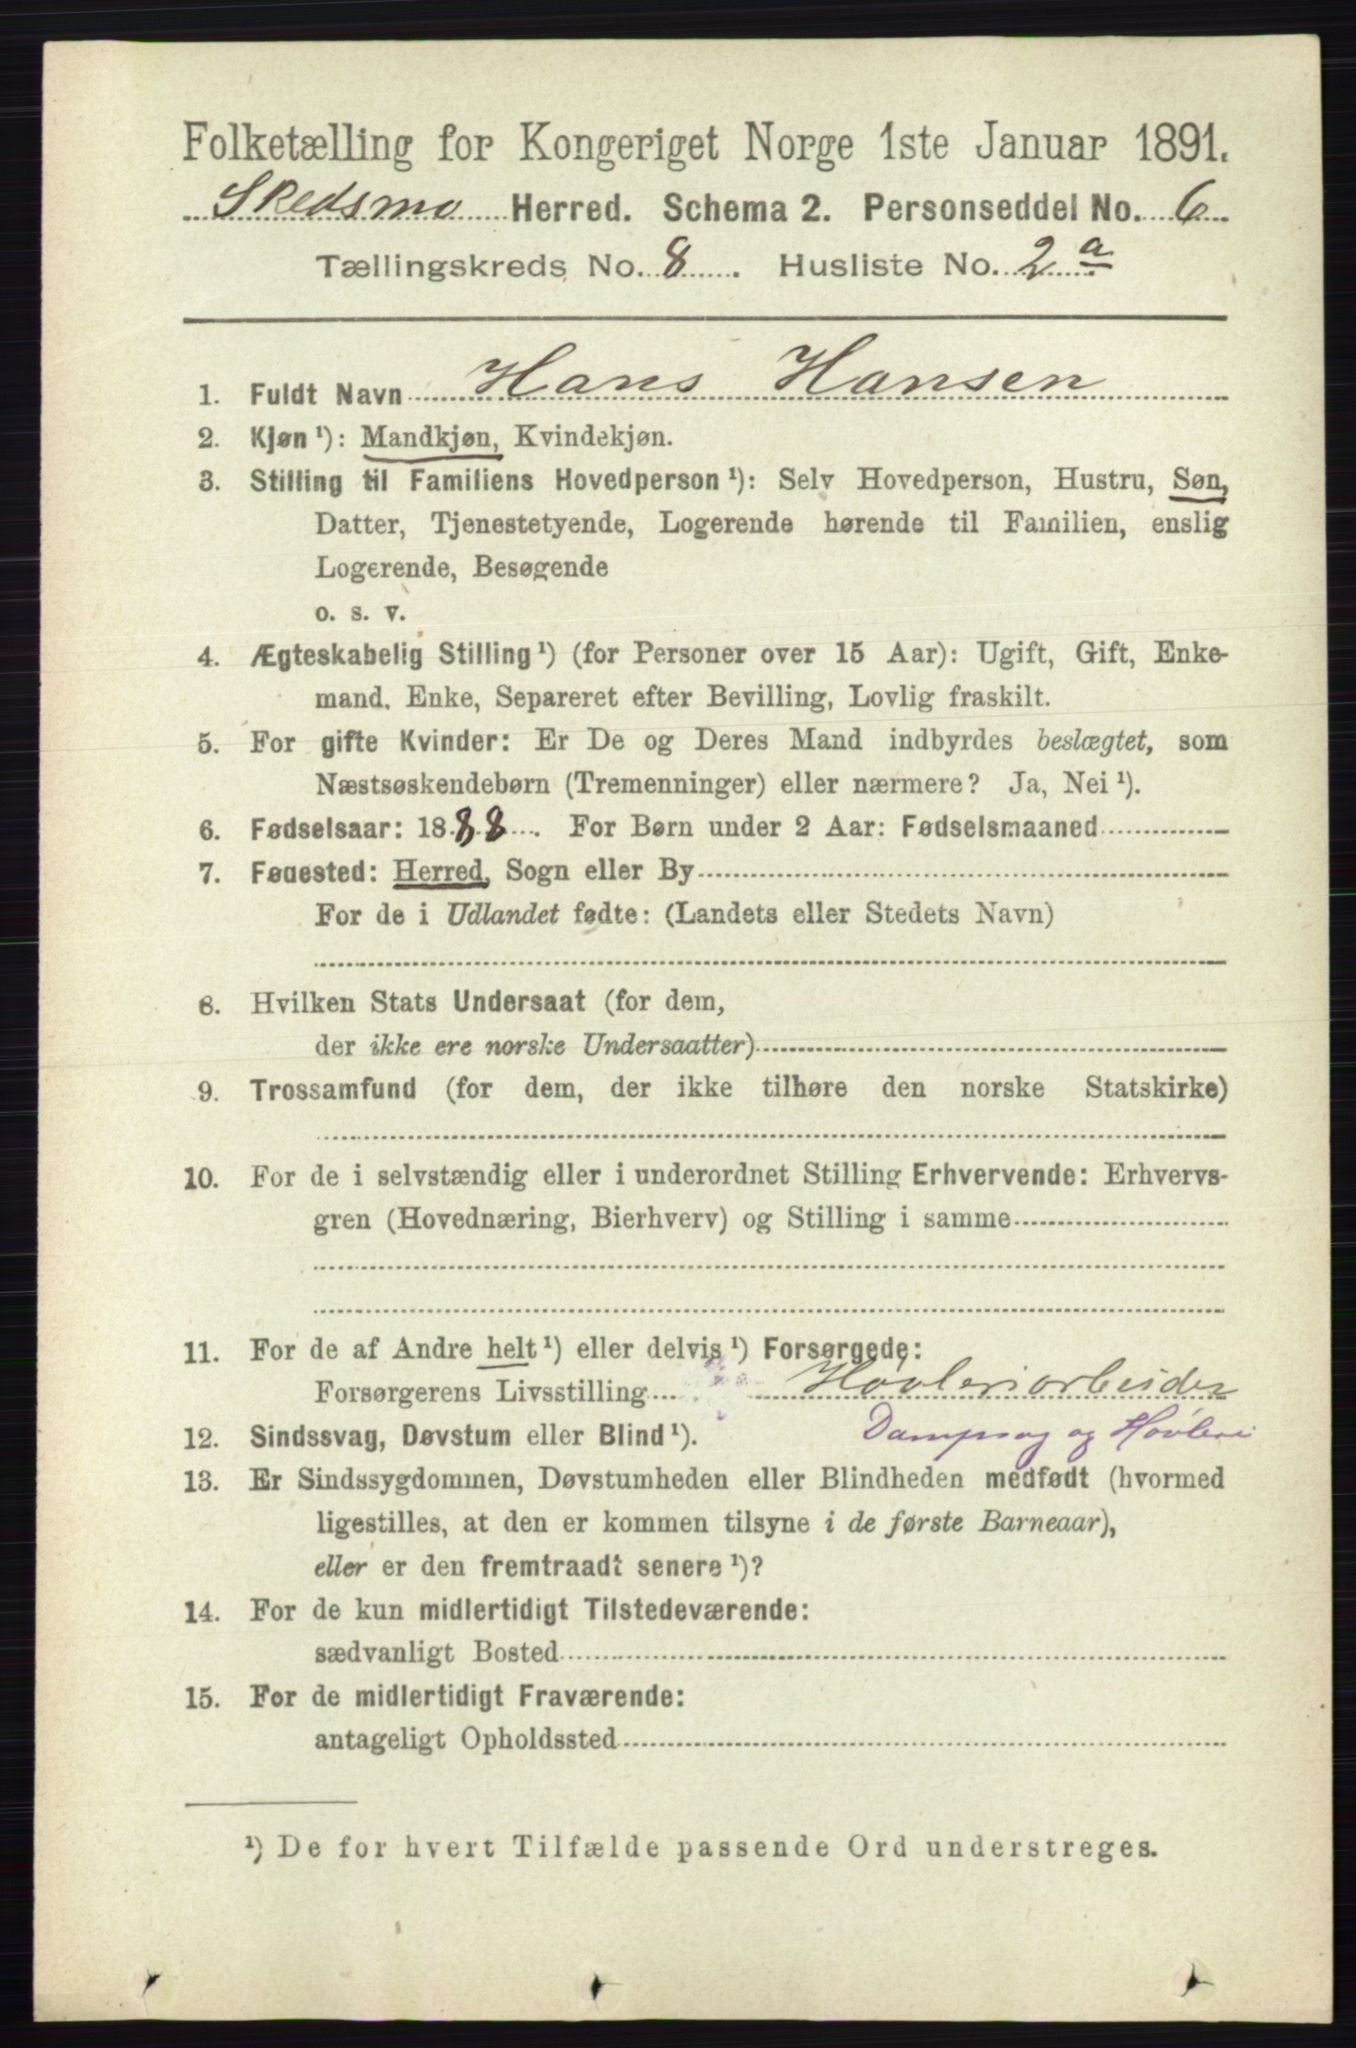 Folketælling for Kongeriget Norge 1ste Januar 1891.
Skedsmo Herred. Schema 2. Personseddel No. 6
Tællingskreds No. 8. Husliste No. 2 a
1. Fuldt Navn Hans Hansen
2. Kjøn ¹): Mandkjøn, Kvindekjøn.
3. Stilling til Familiens Hovedperson ¹): Selv Hovedperson, Hustru, Søn,
Datter, Tjenestetyende, Logerende hørende til Familien, enslig
Logerende, Besøgende
o. s. v.
4. Ægteskabelig Stilling ¹) (for Personer over 15 Aar): Ugift, Gift, Enke-
mand, Enke, Separeret efter Bevilling, Lovlig fraskilt.
5. For gifte Kvinder: Er De og Deres Mand indbyrdes beslægtet, som
Næstsøskendebørn (Tremenninger) eller nærmere? Ja, Nei ¹).
6. Fødselsaar: 1888. For Børn under 2 Aar: Fødselsmaaned
7. Føuested: Herred, Sogn eller By
For de i Udlandet fødte: (Landets eller Stedets Navn)
8. Hvilken Stats Undersaat (for dem,
der ikke ere norske Undersaatter)
9. Trossamfund (for dem, der ikke tilhøre den norske Statskirke)
10. For de i selvstændig eller i underordnet Stilling Erhvervende: Erhvervs-
gren (Hovednæring, Bierhverv) og Stilling i samme
11. For de af Andre helt ¹) eller delvis ¹) Forsørgede:
Forsørgerens Livsstilling Høvleriarbeider
12. Sindssvag, Døvstum eller Blind ¹). Dampsag og Høvleri
13. Er Sindssygdommen, Døvstumheden eller Blindheden medfødt (hvormed
ligestilles, at den er kommen tilsyne i de første Barneaar),
eller er den fremtraadt senere ¹)?
14. For de kun midlertidigt Tilstedeværende:
sædvanligt Bosted
15. For de midlertidigt Fraværende:
antageligt Opholdssted
¹) De for hvert Tilfælde passende Ord understreges.